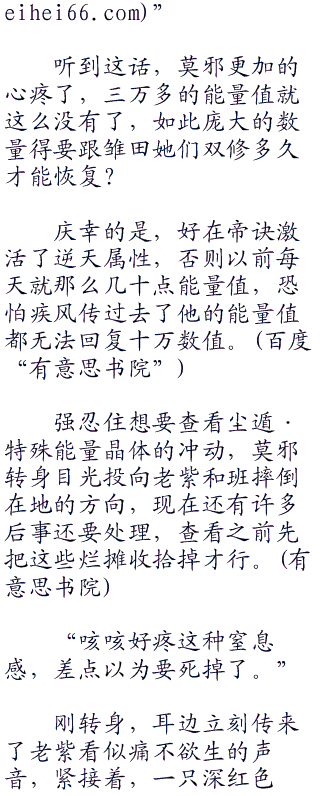 eihei66.com)”
听到这话，莫邪更加的
心疼了，三万多的能量值就
这么没有了，如此庞大的数
量得要跟雏田她们双修多久
才能恢复？
庆幸的是，好在帝诀激
活了逆天属性，否则以前每
天就那么几十点能量值，恐
怕疾风传过去了他的能量值
都无法回复十万数值。(百度
“有意思书院”)
强忍住想要查看尘遁·
特殊能量晶体的冲动，莫邪
转身目光投向老紫和班摔倒
在地的方向，现在还有许多
后事还要处理，查看之前先
把这些烂摊收拾掉才行。(有
意思书院)
“咳咳好疼这种窒息
感，差点以为要死掉了。”
刚转身，耳边立刻传来
了老紫看似痛不欲生的声
音，紧接着，一只深红色